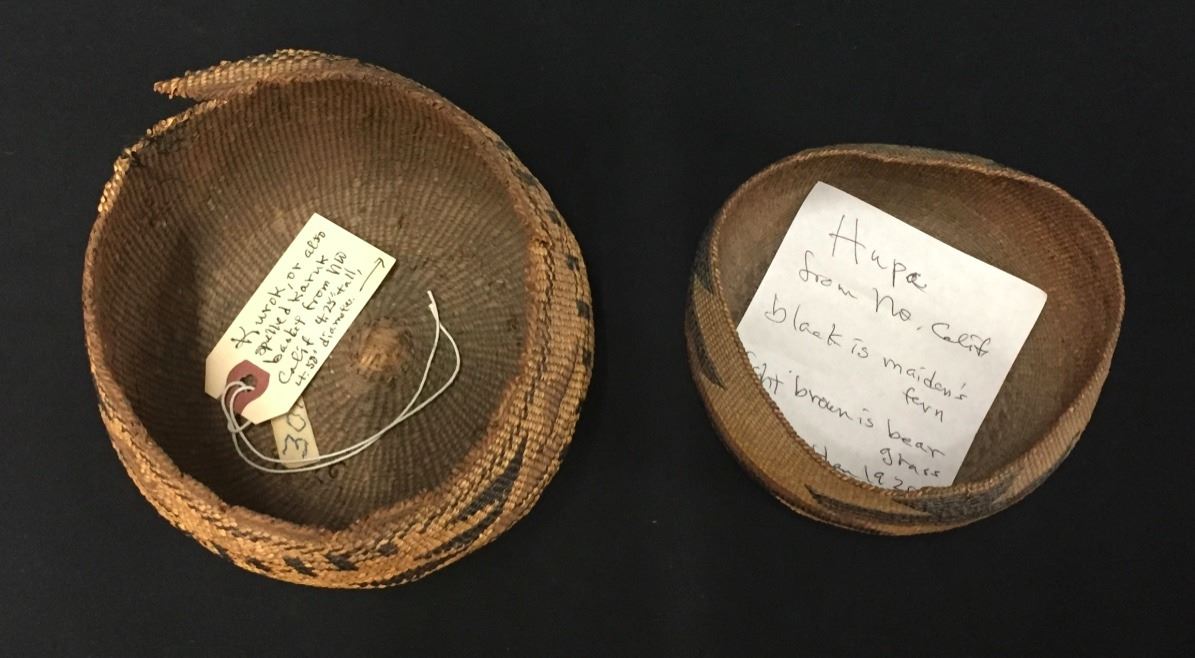 Kurok, or also
spelled Karuk
basket from NW
Calif 4.25" tall,
4.50" diameter.
30
Hupa
from No. Calif
black is maiden's
fern
ght brown is bear
grass
192